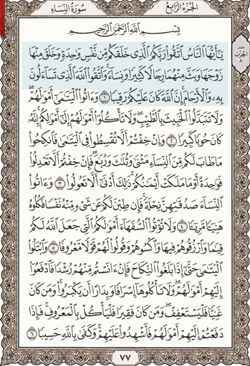 الجزء الرابع
سورة النساء
بسم الله الرحمن الرحيم
يأيها الناس اتقوا ربكم الذى خلقكم من نفس وحدة وخلق منها
زوجها وبث منهما رجالا كثيرا ونساء واتقوا الله الذى تساءلون
به والأرحام إن الله كان عليكم رقيبا ١ وءاتوا اليتمى أمولهم
ولا تتبدلوا الخبيث بالطيب ولا تأكلوا أمولهم إلى أمولكم إنه
كان حوبا كبيرا ٢ وإن خفتم ألا تقسطوا فى اليتمى فانكحوا
ما طاب لكم من النساء مثنى وثلث وربع فإن خفتم ألا تعدلوا
فوحدة أو ما ملكت أيمنكم ذلك أدنى ألا تعولوا ٣ وءاتوا
النساء صدقتهن نحلة فإن طبن لكم عن شىء منه نفسا فكلوه
هنيئا مريئا ٤ ولا تؤتوا السفهاء أمولكم التى جعل الله لكم
قيما وارزقوهم فيها واكسوهم وقولوا لهم قولا معروفا ٥ وابتلوا
اليتمى حتى إذا بلغوا النكاح فإن ءانستم منهم رشدا فادفعوا
إليهم أمولهم ولا تأكلوها إسرافا وبدارا أن يكبروا ومن كان
غنيا فليستعفف ومن كان فقيرا فليأكل بالمعروف فإذا
دفعتم إليهم أمولهم فأشهدوا عليهم وكفى بالله حسيبا ٦
٧٧